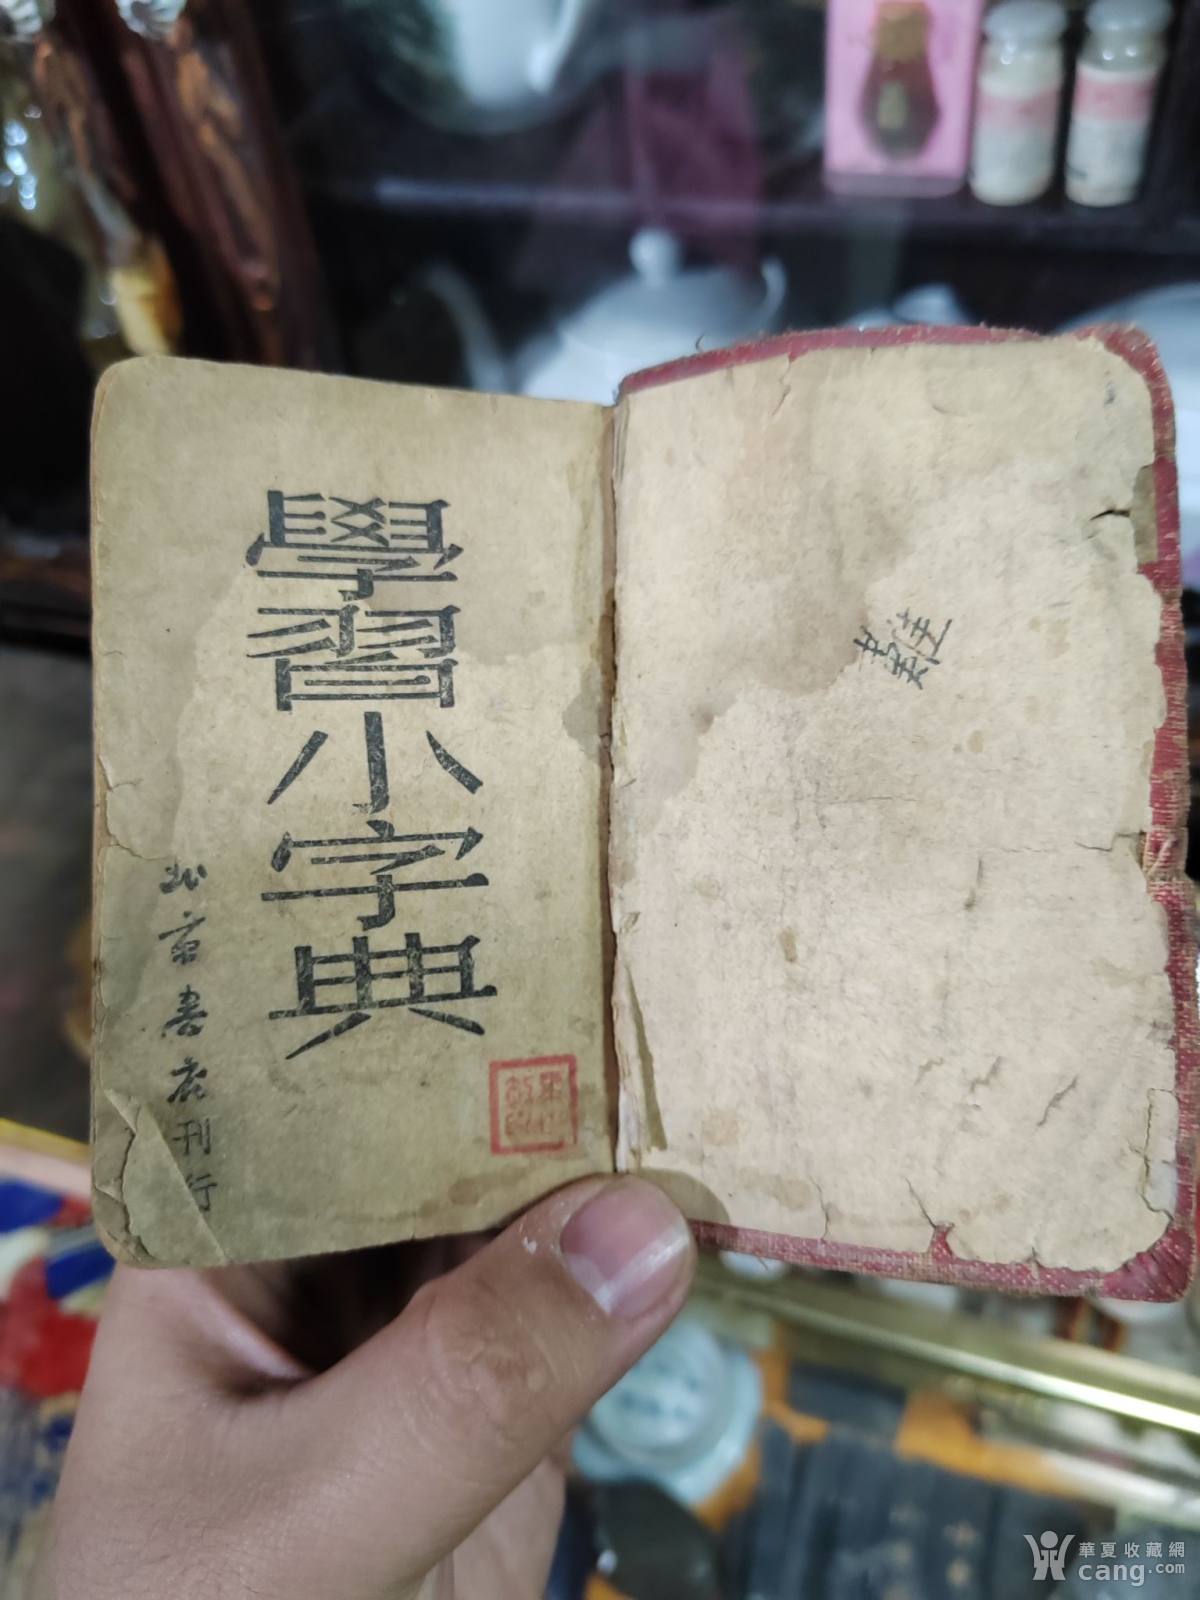 學習小字典
北京書店刊行
華夏收藏網
cang.com